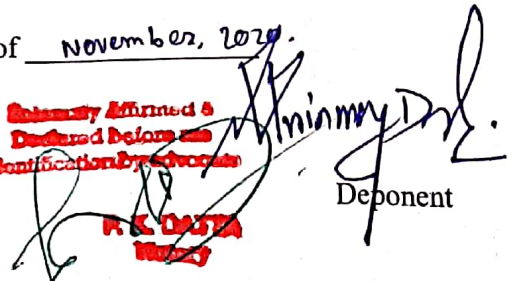 of November, 2020.
Solemnly Affirmed &
Declared before me
Identification by Advocate
Deponent
P. K. DATTA
Notary